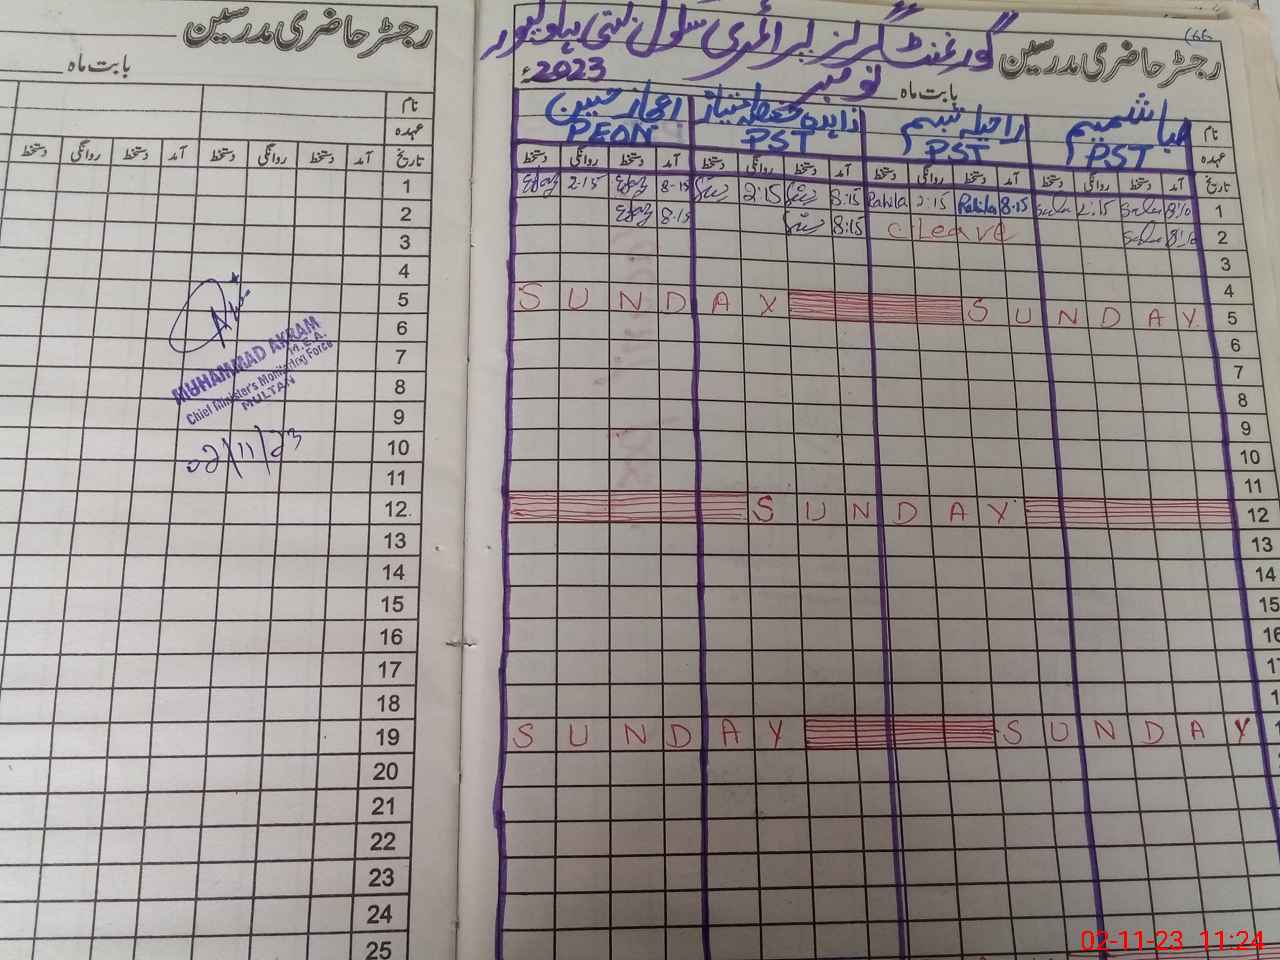 رجسٹر حاضری مدرسین
بابت ماہ
نام
عہدہ
تاریخ آمد دستخط روانگی دستخط آمد دستخط روانگی دستخط
1
2
3
4
5
6
7
8
9
10
11
12
13
14
15
16
17
18
19
20
21
22
23
24
25
MUHAMMAD AKRAM
M.E.A.
Chief Minister's Monitoring Force
MULTAN
02/11/23
166
رجسٹر حاضری مدرسین گورنمنٹ گرلز پرائمری سکول بستی بہاولپور
بابت ماہ نومبر 2023ء
نام صبا شمیم راحیلہ تبسم زاہدہ اعجاز حسین
عہدہ PST PST PST PEON
تاریخ آمد دستخط روانگی دستخط آمد دستخط روانگی دستخط آمد دستخط روانگی دستخط آمد دستخط روانگی دستخط
1 8:10 Saba 2:15 Saba 8:15 Rahila 2:15 Rahila 8:15 2:15 8:15 Ejaz 2:15 Ejaz
2 8:10 Saba C.Leave 8:15 8:15 Ejaz
3
4
5 SUNDAY SUNDAY
6
7
8
9
10
11
12 SUNDAY
13
14
15
16
17
1
1 SUNDAY SUNDAY
02-11-23 11:24